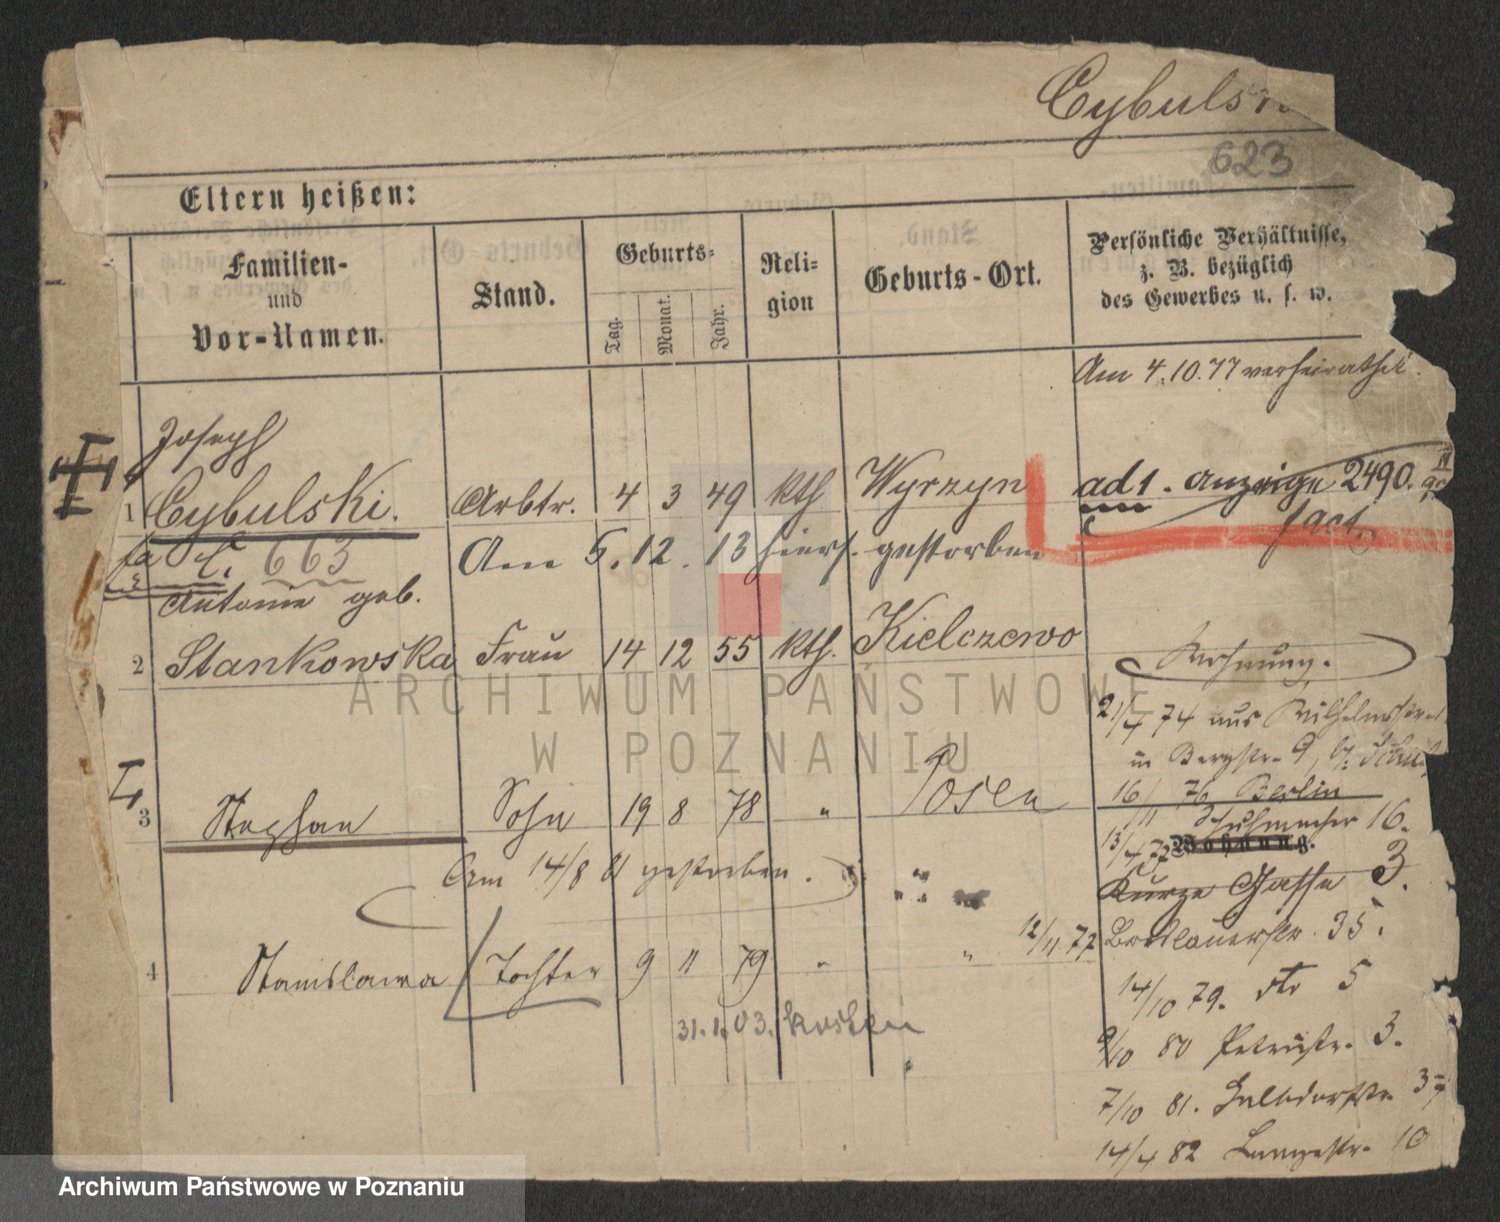 Cybulski
623
Eltern heißen:
Familien-
und
Vor-Namen.
Stand.
Geburts-
Tag.
Monat.
Jahr.
Reli-
gion
Geburts-Ort.
Persönliche Verhältnisse,
z. B. bezüglich
des Gewerbes u. s. w.
Am 4.10.77 verheirathet.
Joseph
1 Cybulski. Arbtr. 4 3 49 kth Wyrzyn ad 1. Anzeige 2490.
fact
663 Am 5.12.13 hiers. gestorben
Antonie geb.
2 Stankowska Frau 14 12 55 kth. Kielczewo
Wohnung.
21/4 74 aus Wilhelmstr.
in Bergstr. 9,
3 Stephan Sohn 19 8 78 " Posen
16/11 76 Berlin
Schuhmacher 16.
13/4 77 Wohnung.
Am 14/8 81 gestorben.
Kurze Gasse 3.
4 Stanislawa Tochter 9 11 79 " "
12/11 77 Breslauerstr. 35.
14/10 79. dto 5
31.1.03. Kosten
9/10 80 Petristr. 3.
7/10 81. Halbdorfstr. 37
14/4 82 Langestr. 10
ARCHIWUM PAŃSTWOWE
W POZNANIU
Archiwum Państwowe w Poznaniu